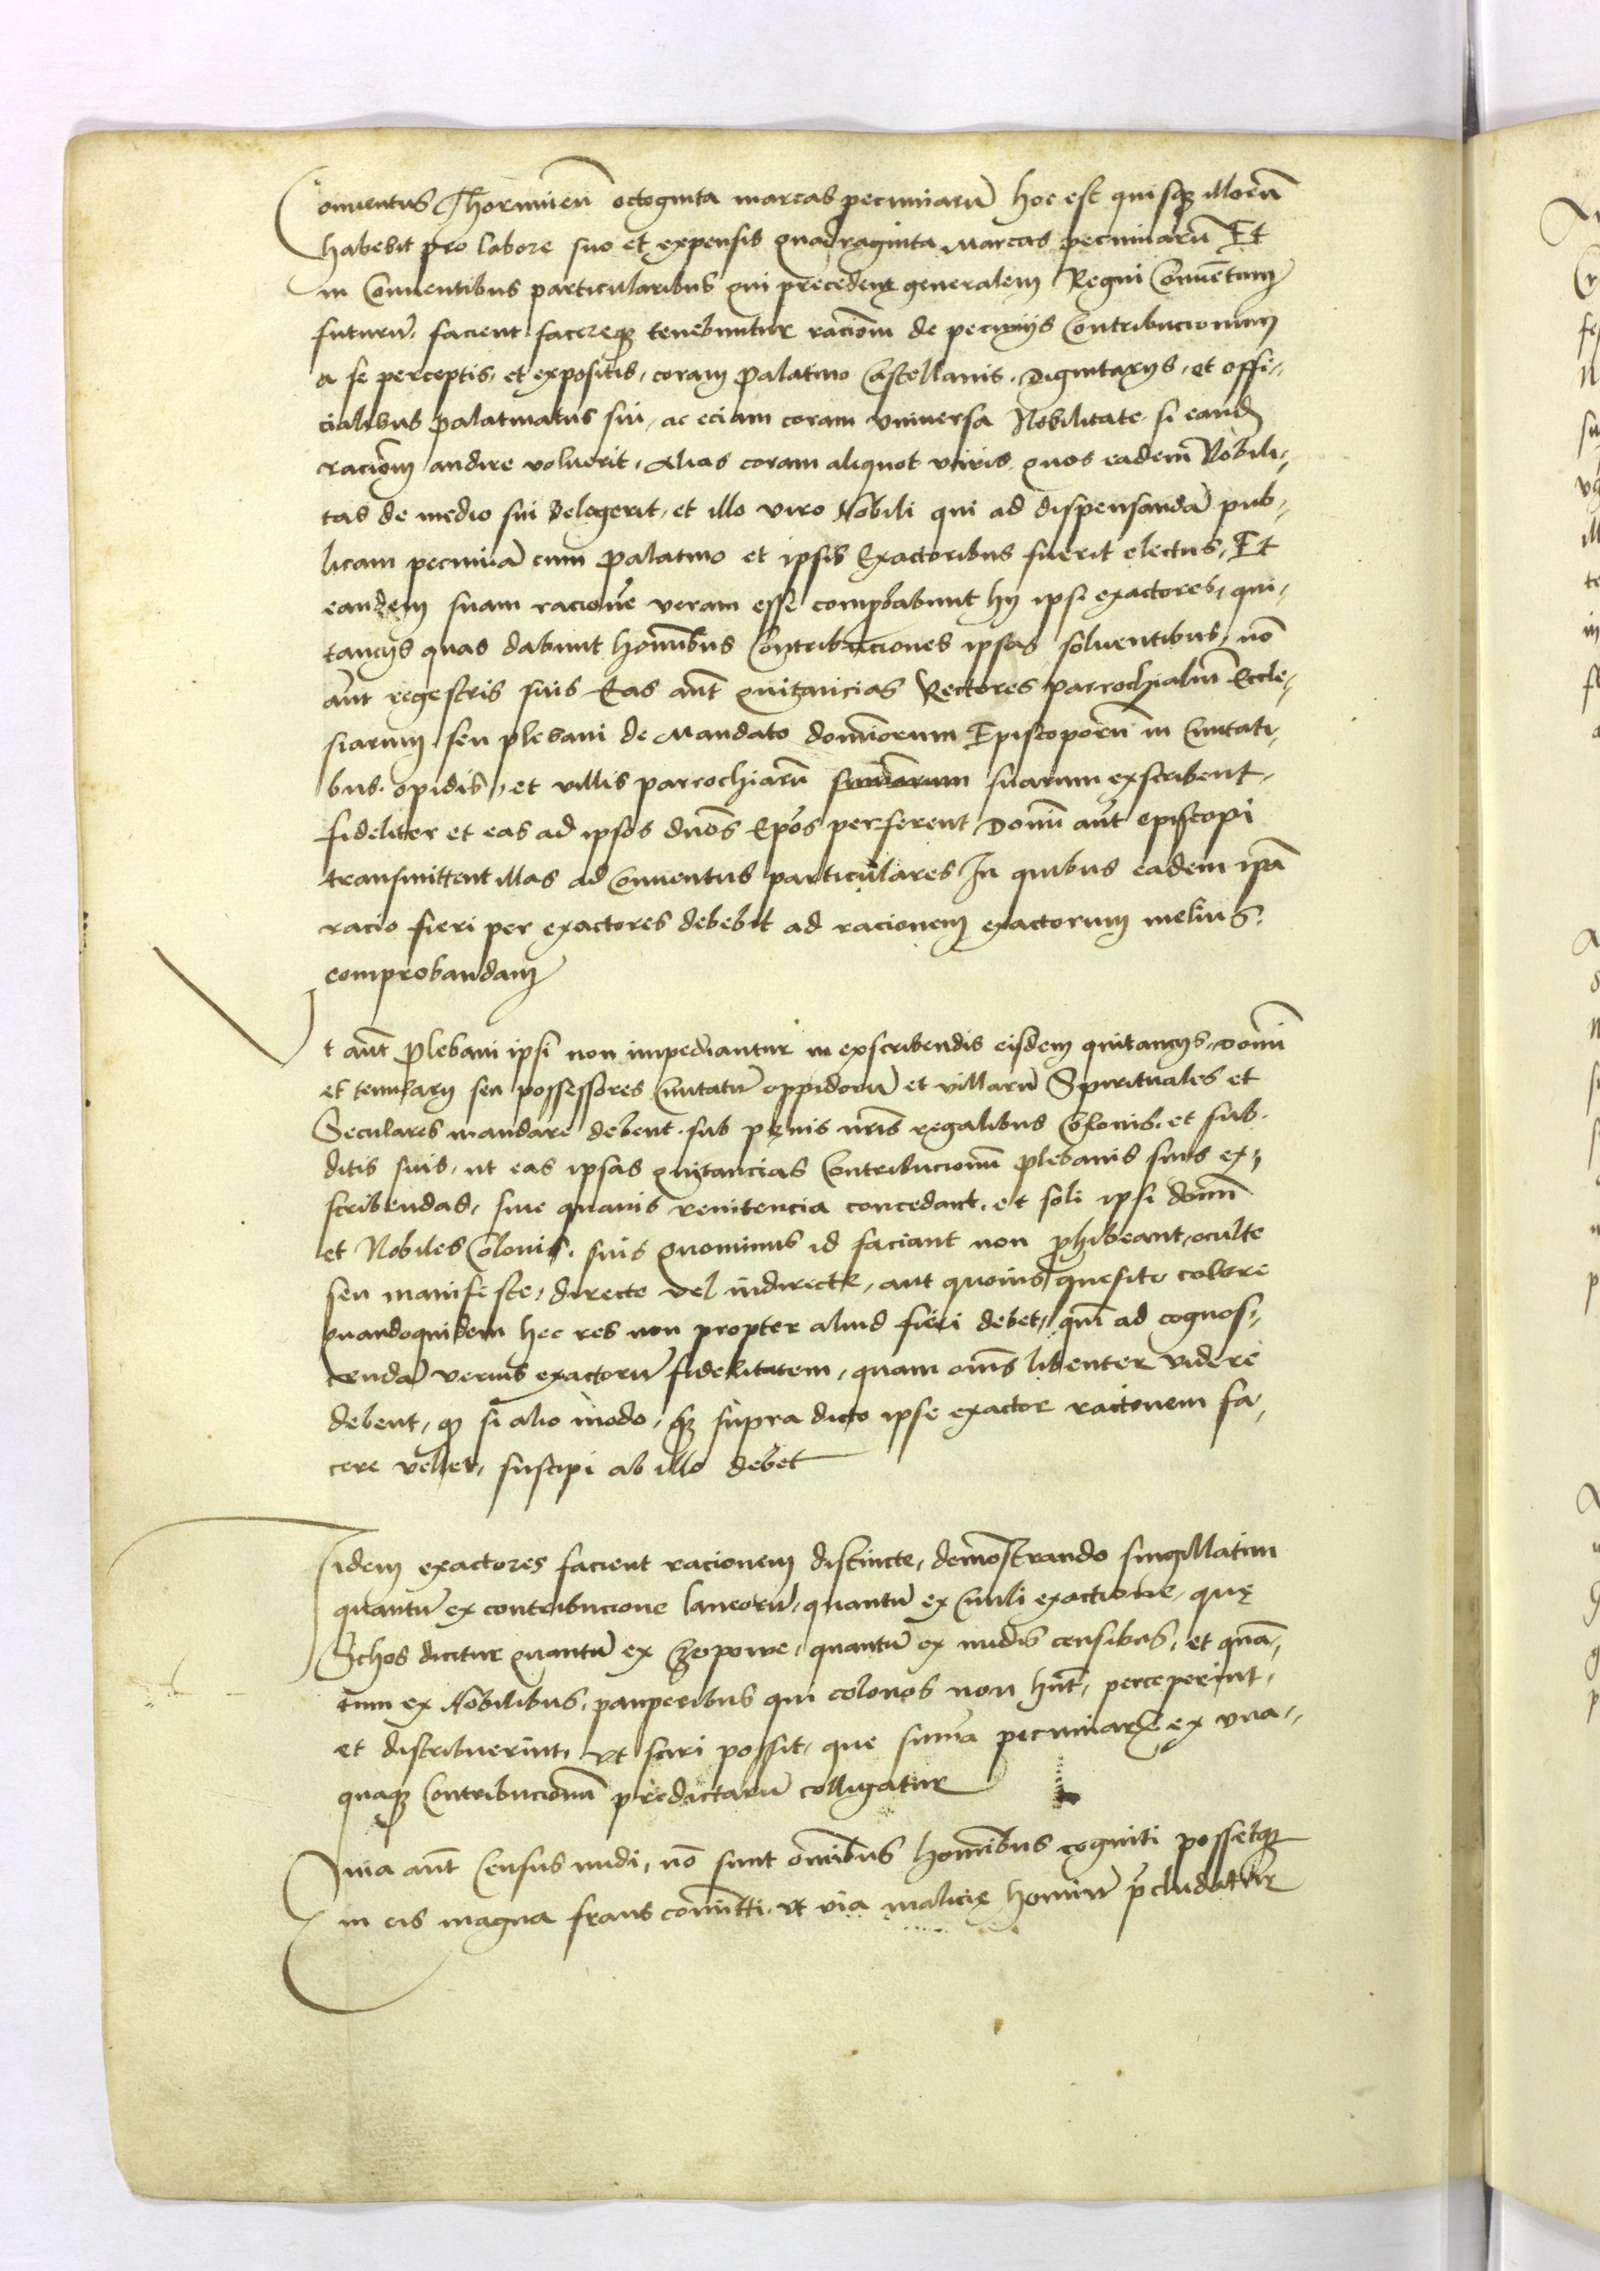 Conuentus Thorunieñ octoginta marcas pecuniarũ hoc est quisqȝ illorũ
habebit pro labore suo et expensis quadraginta Marcas pecuniarũ Et
in Conuentibus particularibus qui precedent generalem Regni Conuẽtum
futurũ, facient facereqȝ tenebuntur racioñm de pecunijs Contribucionum
a se perceptis, et expositis, coram Palatino Castellanis, Dignitarijs, et offi-
cialibus palatinatus sui, ac eciam coram vniuersa Nobilitate si eandẽ
racioñm audire voluerit, Alias coram aliquot viris quos eadem Nobili-
tas de medio sui delegerit, et illo viro Nobili qui ad dispensandã pub-
licam pecuniã cum Palatino et ipsis Exactoribus fuerit electus, Et
eandem suam racionẽ veram esse comprobabunt hij ipsi exactores, qui-
tancijs quas dabunt hominibus Contribuciones ipsas soluentibus, nõ
aũt regestris suis Eas aũt quitancias Rectores parrochialiũ Eccle-
siarum seu plebani de Mandato dominorum Episcoporũ in Ciuitati-
bus, opidis, et villis parrochiarũ suarum exscribent,
fideliter et eas ad ipsos dños Ep̃os perferent Domĩ aũt episcopi
transmittent illas ad Conuentus particulares In quibus eadem ip̃a
racio fieri per exactores debebit ad racionem exactorum melius
comprobandam
t aũt Plebani ipsi non impediantur in exscribendis eisdem quitancijs, Domĩ
et tenutarij seu possessores Ciuitatũ oppidorũ et villarũ Spirituales et
Seculares mandare debent, sub penis nr̃is regalibus Colonis, et sub-
ditis suis, ut eas ipsas quitancias Contribucionũ plebanis suis ex-
scribendas, sine quauis renitencia concedant, et soli ipsi domĩ
et Nobiles Colonis, suis quominus id faciant non prohibeant, oculte
seu manifeste, directe vel indirecte, aut quouis quesito colore
quandoquidem hec res non propter aliud fieri debet, quã ad cognos-
cendã verius exactorũ fidelitatem, quam om̃s libenter videre
debent, qȝ si alio modo, qȝ supra dicto ipse exactor racionem fa-
cere vellet, suscipi ab illo debet
Iidem exactores facient racionem distincte, demõstrando singillatim
quantũ ex contribucione laneorũ, quantũ ex Ciuili exactione, quę
Schos dicitur quantũ ex Czopowe, quantũ ex nudis censibus, et quã-
tum ex Nobilibus, pauperibus qui colonos non hñt, perceperint,
et distribuerint, vt sciri possit, que sum̃a pecuniarũ ex vna-
quaqȝ Contribucionũ predictarũ colligatur
Quia aũt Census nudi, nõ sunt omnibus hominibus cogniti possetqȝ
in eis magna fraus com̃itti, vt via malicię hominũ p̃cludatur